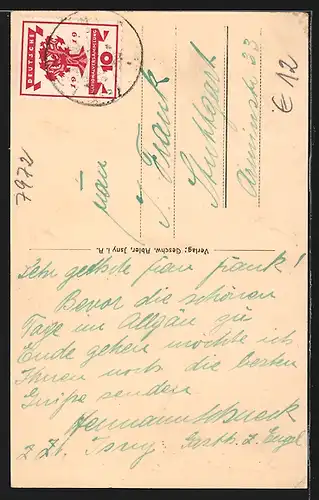 DEUTSCHE
NATIONALVERSAMMLUNG
1919
10
7972
€ 12
Frau
J. Frank
Stuttgart
Reinsburgstr 33
Verlag: Geschw. Abler, Jsny i. A.
Sehr geehrte Frau Frank!
Bevor die schönen
Tage im Allgäu zu
Ende gehen möchte ich
Ihnen noch die besten
Grüße senden
Hermann
z Zt. Isny Gasth. z. Engel